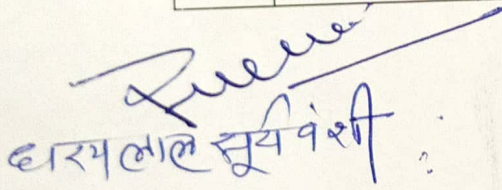 धरम लाल सूर्यवंशी